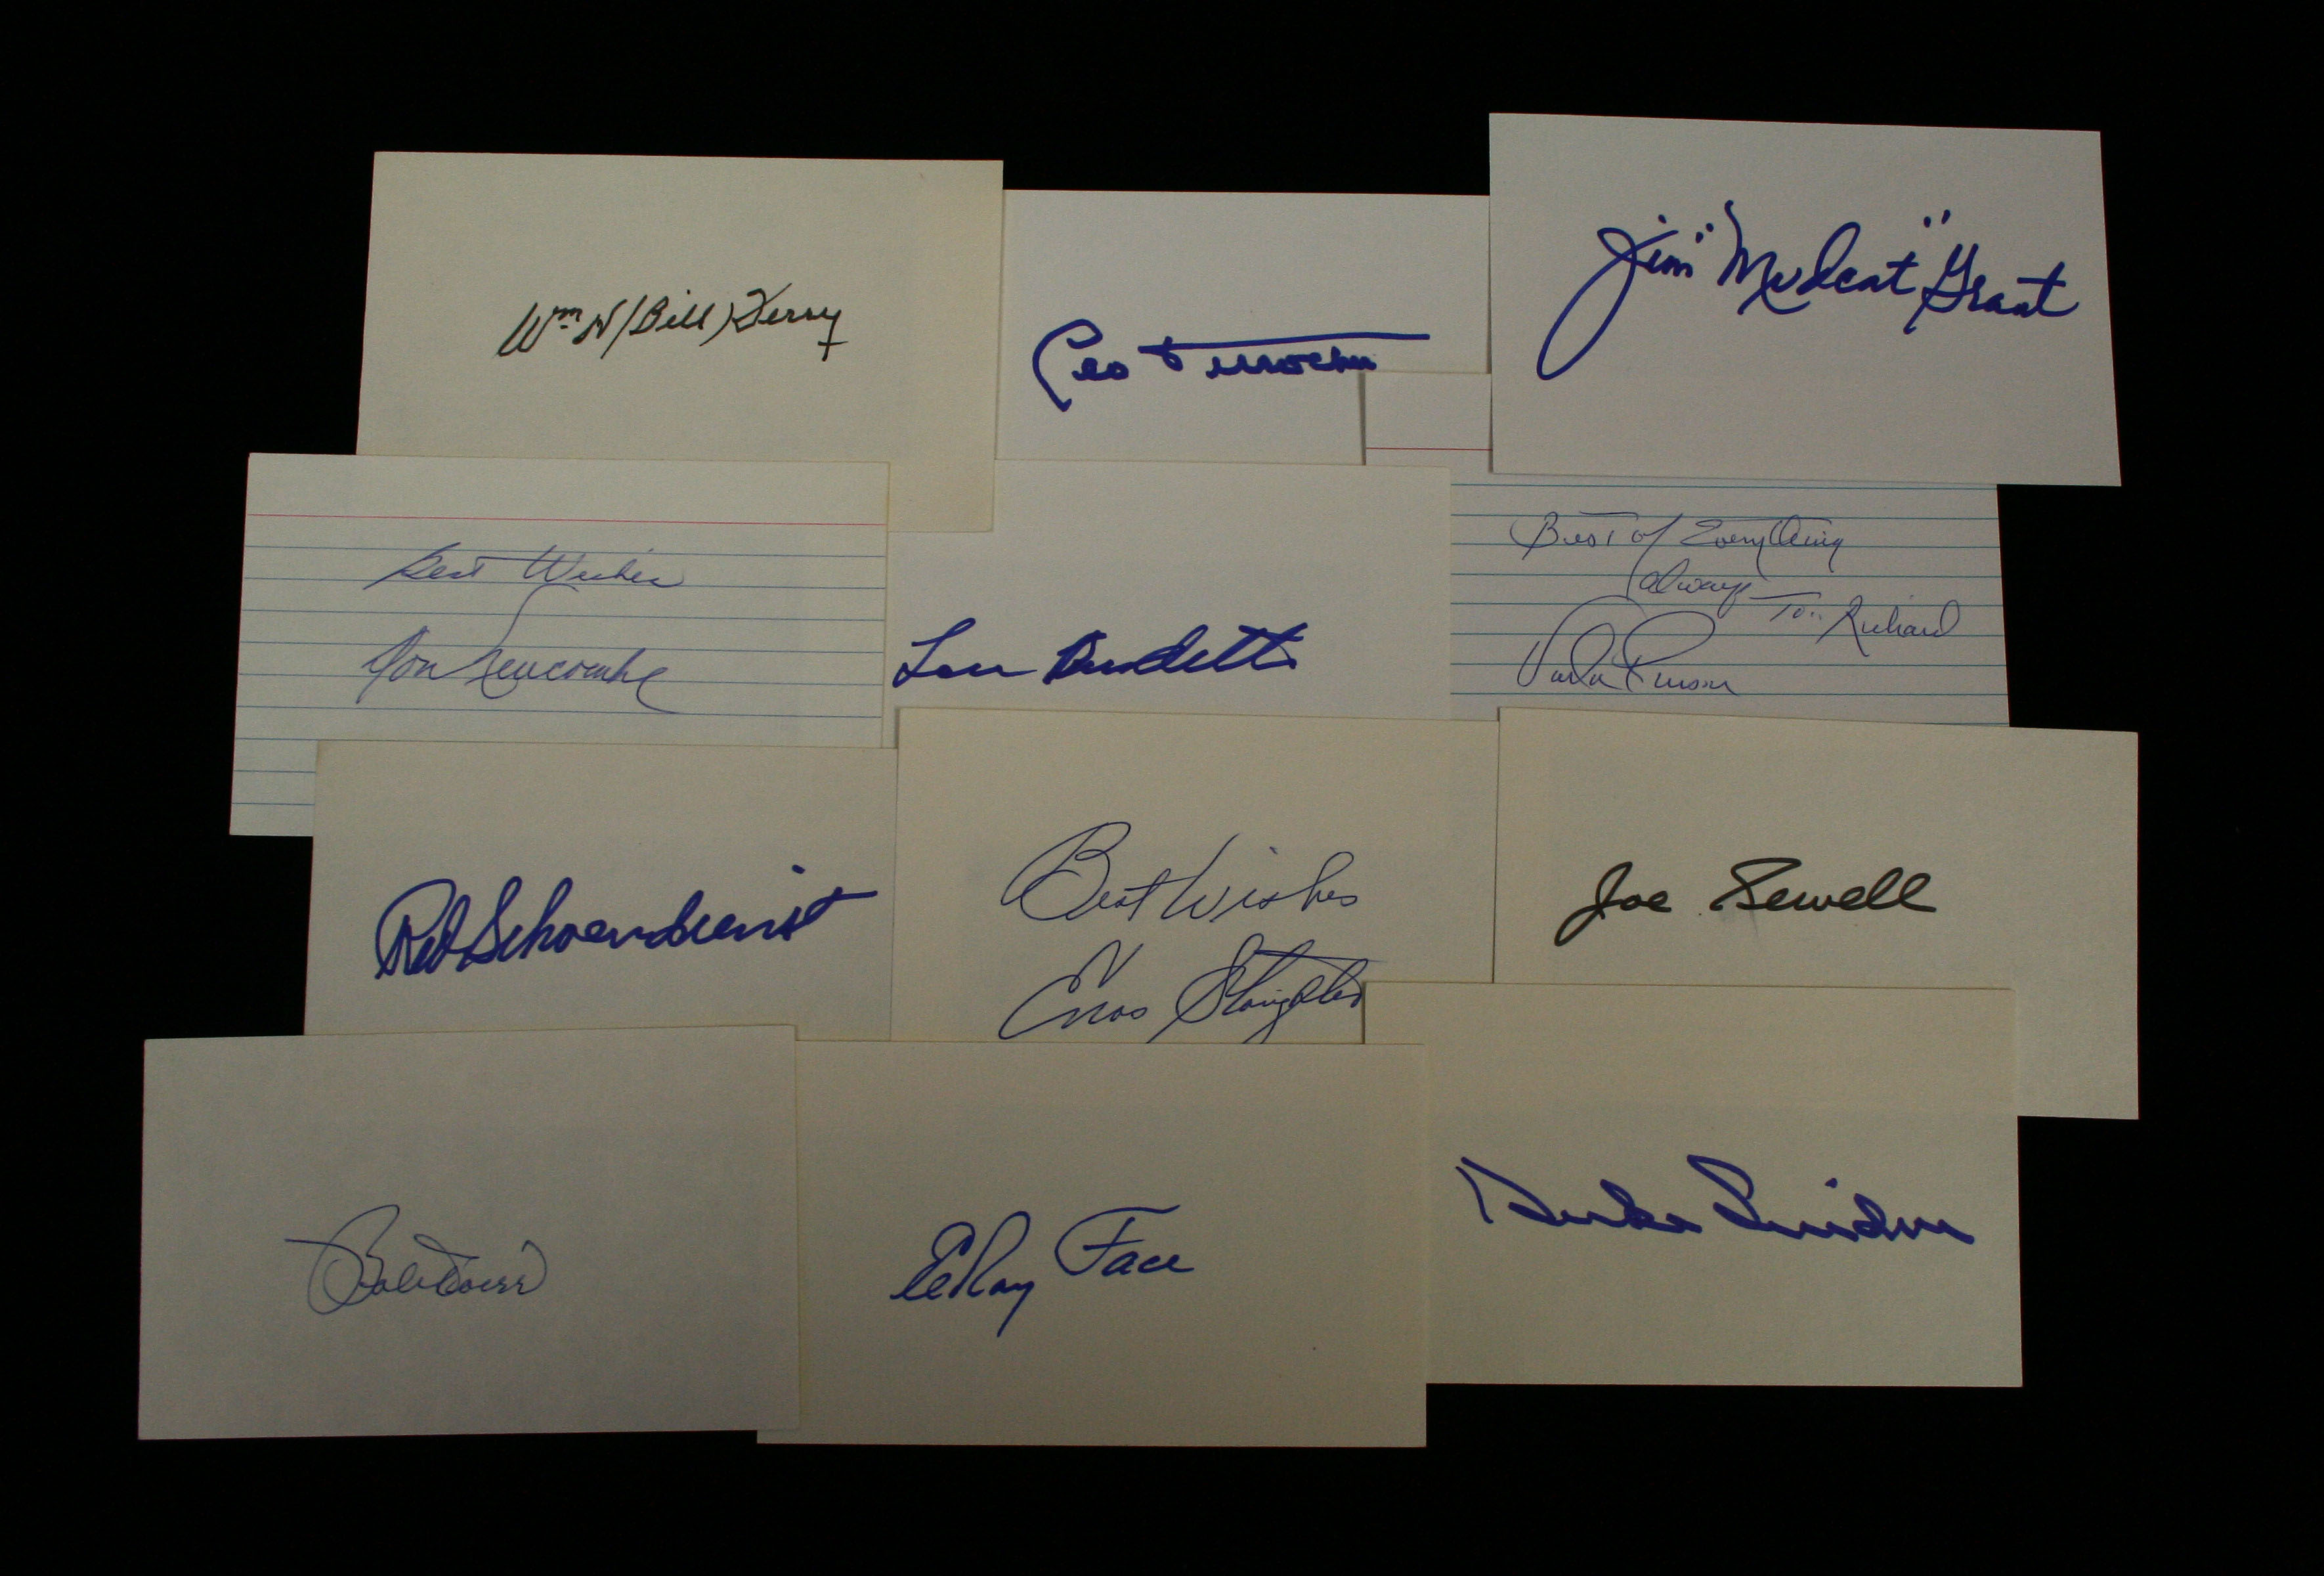 Wm N (Bill) Terry
Leo Durocher
Jim "Mudcat" Grant
Best Wishes
Don Newcombe
Lew Burdette
Best of Everything
always To: Richard
Vada Pinson
Red Schoendienst
Best Wishes
Enos Slaughter
Joe Sewell
Bob Doerr
ElRoy Face
Duke Snider